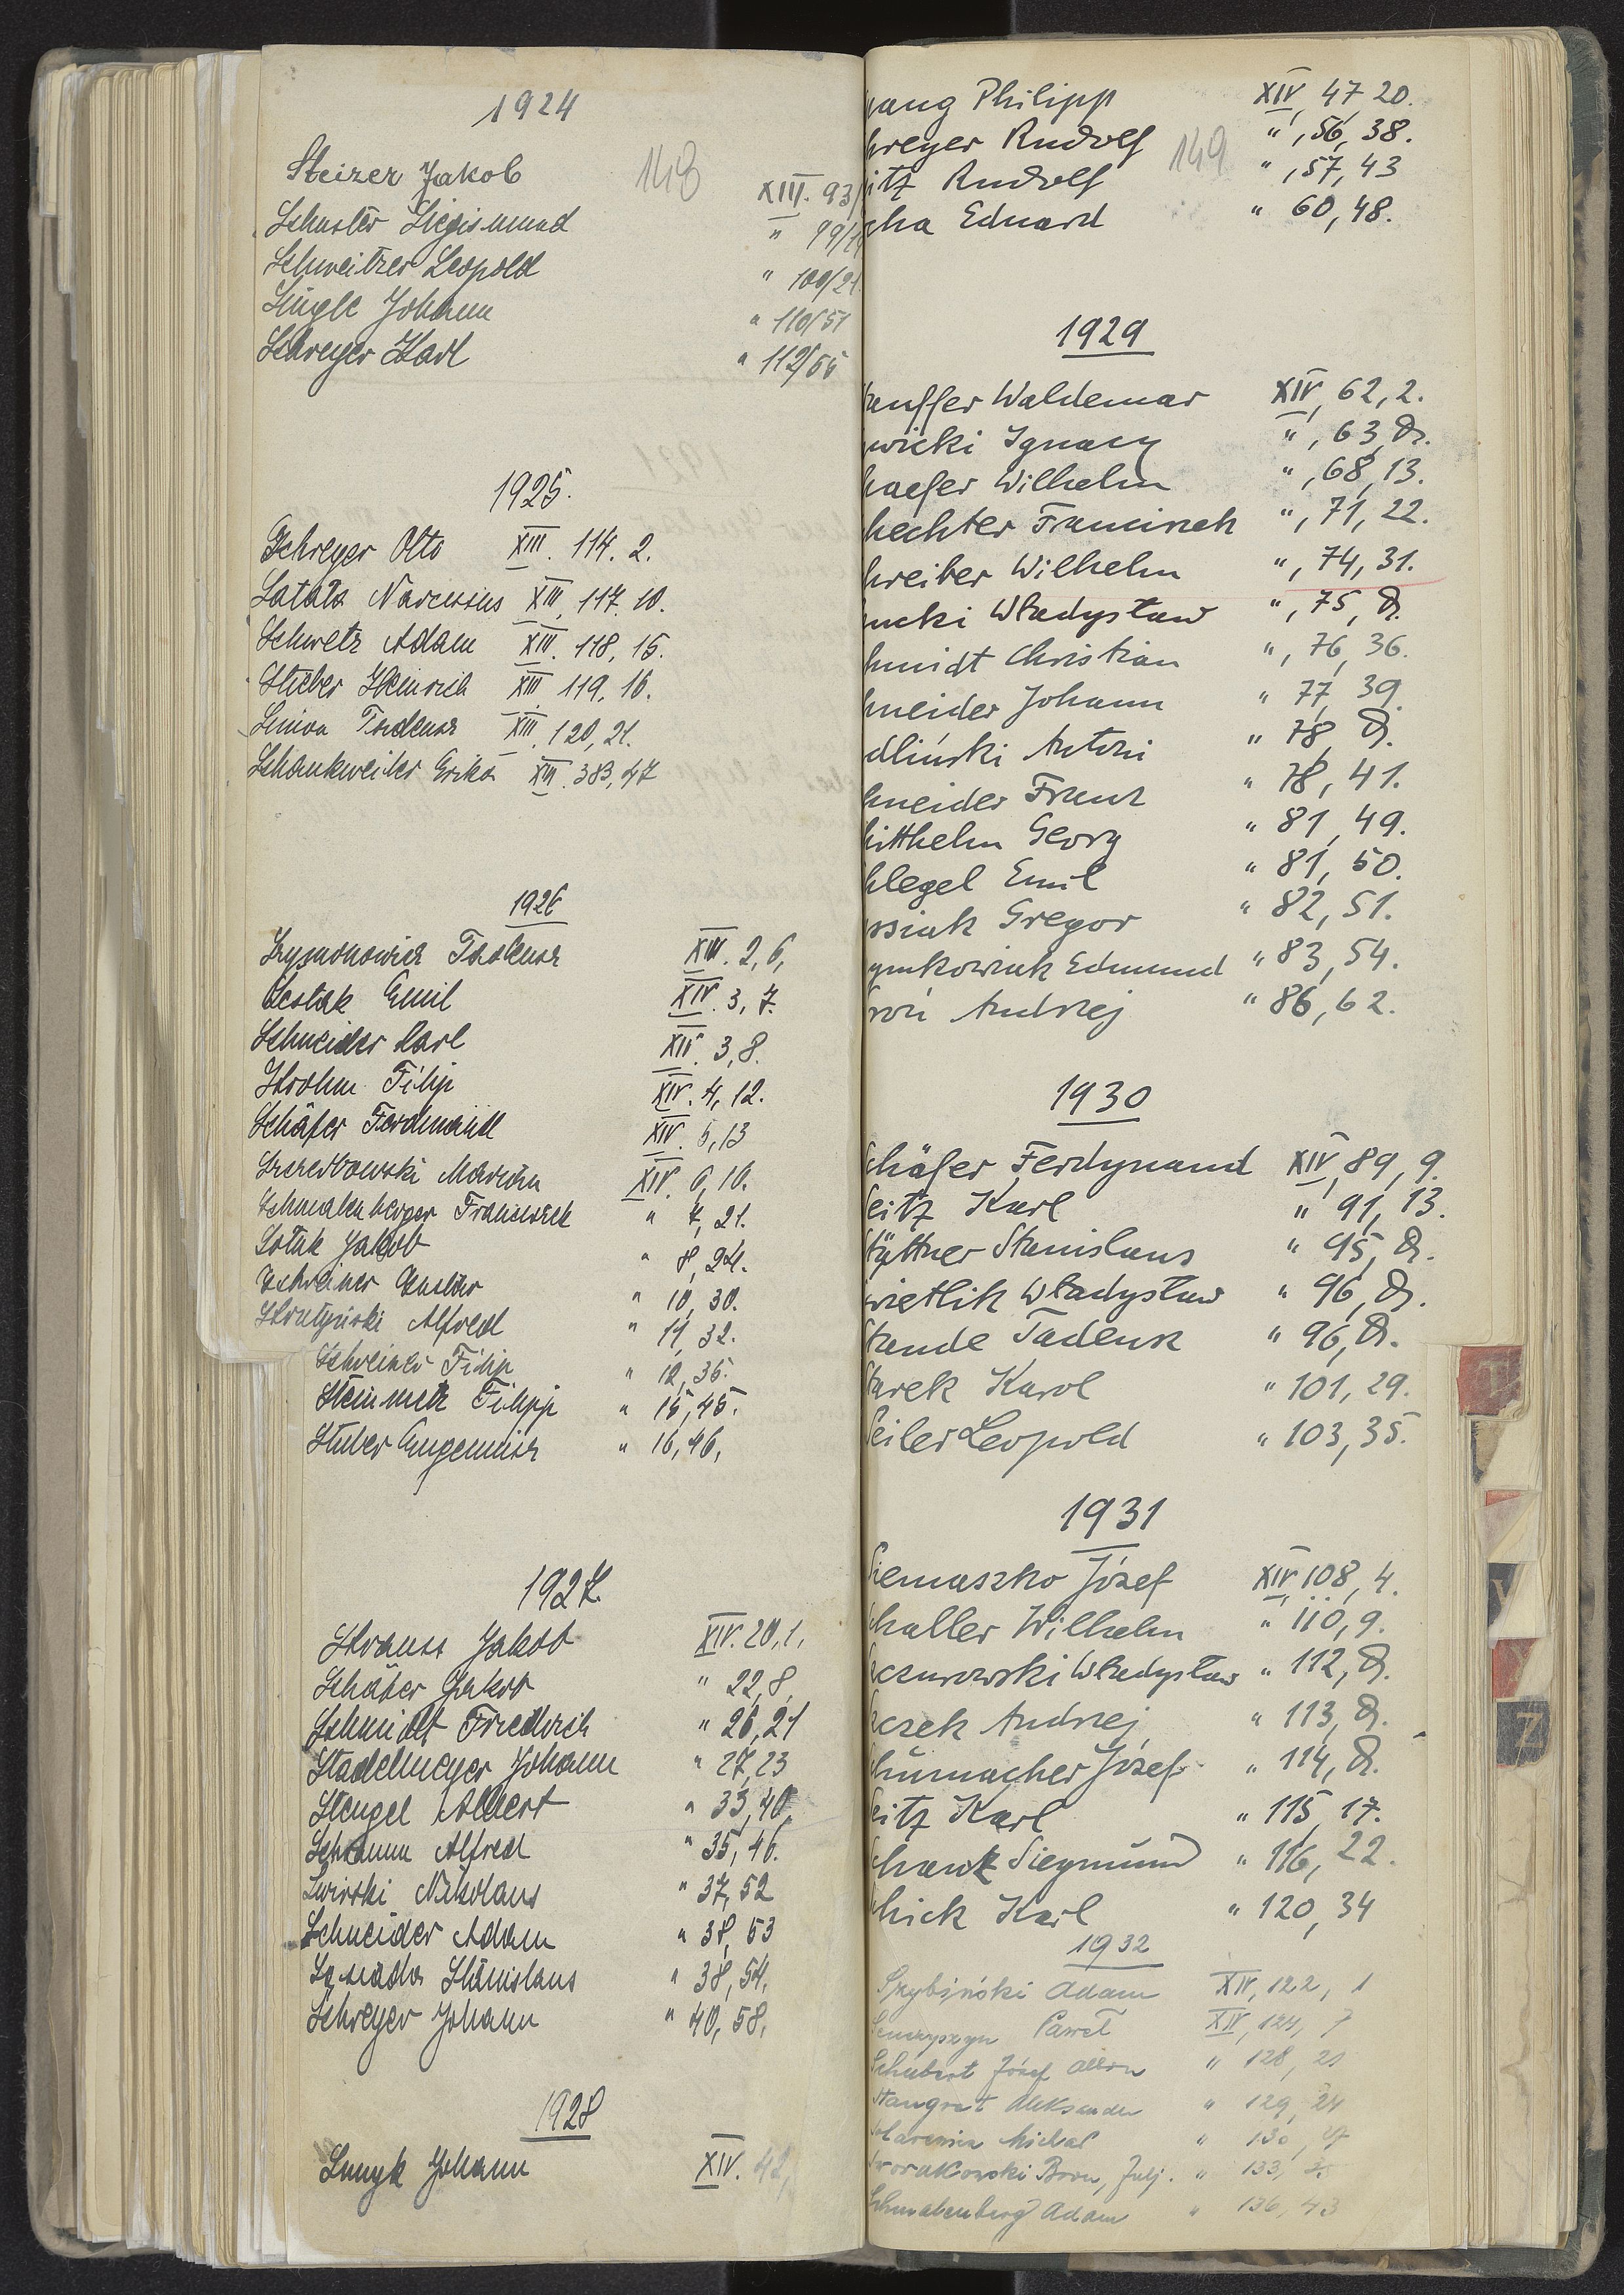 1924
148
Steizer Jakob XIII. 93/
Schuster Siegismund " 99/
Schweitzer Leopold " 100/21
Johann " 110/51
Schreyer Karl " 112/55
1925.
Schreyer Otto XIII. 114. 2.
Satała Narcissus XIII. 117. 10.
Schwetz Adam XIII. 118, 15.
Stieber Heinrich XIII. 119. 16.
XIII. 120, 21.
Schankweiler Erika XIII. 383, 47
1926
Szymonowicz Tadeusz 2, 6,
Sestak Emil XIV. 3, 7.
Schneider Karl XIV. 3, 8.
Strohm Filip XIV. 4, 12.
Schäfer Ferdinand XIV. 5, 13
Szczerbowski Marian XIV. 6, 16.
Schmalenberger Franciszek " 7, 21.
Jakob " 8, 24.
Schreiner Gustav " 10, 30.
Strutyński Alfred " 11, 32.
Schreiner Filip " 12, 35.
Steinmetz Filipp " 15, 45.
Stuber Eugeniusz " 16, 46,
1927.
Strauss Jakob XIV. 20, 1,
Schäfer Jakob " 22, 8,
Schmidt Friedrich " 26, 21
Stadelmeyer Johann " 27, 23
Stengel Albert " 33, 40,
Schramm Alfred " 35, 46.
Swirski Nikolaus " 37, 52
Schneider Adam " 38, 53
Stanislaus " 38, 54,
Schreyer Johann " 40, 58,
1928
Smyk Johann XIV. 42,
ang Philipp XIV, 47 20.
hreyer Rudolf " , 56, 38.
149
itz Rudolf " , 57, 43
ha Eduard " 60, 48.
1929
auffer Waldemar XIV, 62, 2.
wicki Ignacy " , 63,
haefer Wilhelm " , 68, 13.
hechter Franciszek " , 71, 22.
hreiber Wilhelm " , 74, 31.
ucki Władysław " , 75,
hmidt Christian " , 76, 36.
hneider Johann " 77, 39.
dliński Antoni " 78,
hneider Franz " 78, 41.
hitthelm Georg " 81, 49.
hlegel Emil " 81, 50.
ssiuk Gregor " 82, 51.
ymkowiak Edmund " 83, 54.
roń Andrzej " 86, 62.
1930
chäfer Ferdynand XIV, 89, 9.
Seitz Karl " 91, 13.
Stüttner Stanislaus " 95,
wietlik Władysław " 96,
Stande Tadeusz " 96,
Starek Karol " 101, 29.
Seiler Leopold " 103, 35.
1931
Siemaszko Józef XIV, 108, 4.
challer Wilhelm " 110, 9.
czurowski Władysław " 112,
czek Andrzej " 113,
chumacher Józef " 114,
eitz Karl " 115, 17.
chank Siegmund " 116, 22.
chick Karl " 120, 34
1932
Adam XIV, 122, 1
Paweł XIV, 124, 7
Schubert Józef " 128, 21
Stangret Aleksander " 129, 24
Michał " 130,
Bron, Julj. " 133,
Schmalenberg Adam " 136, 43